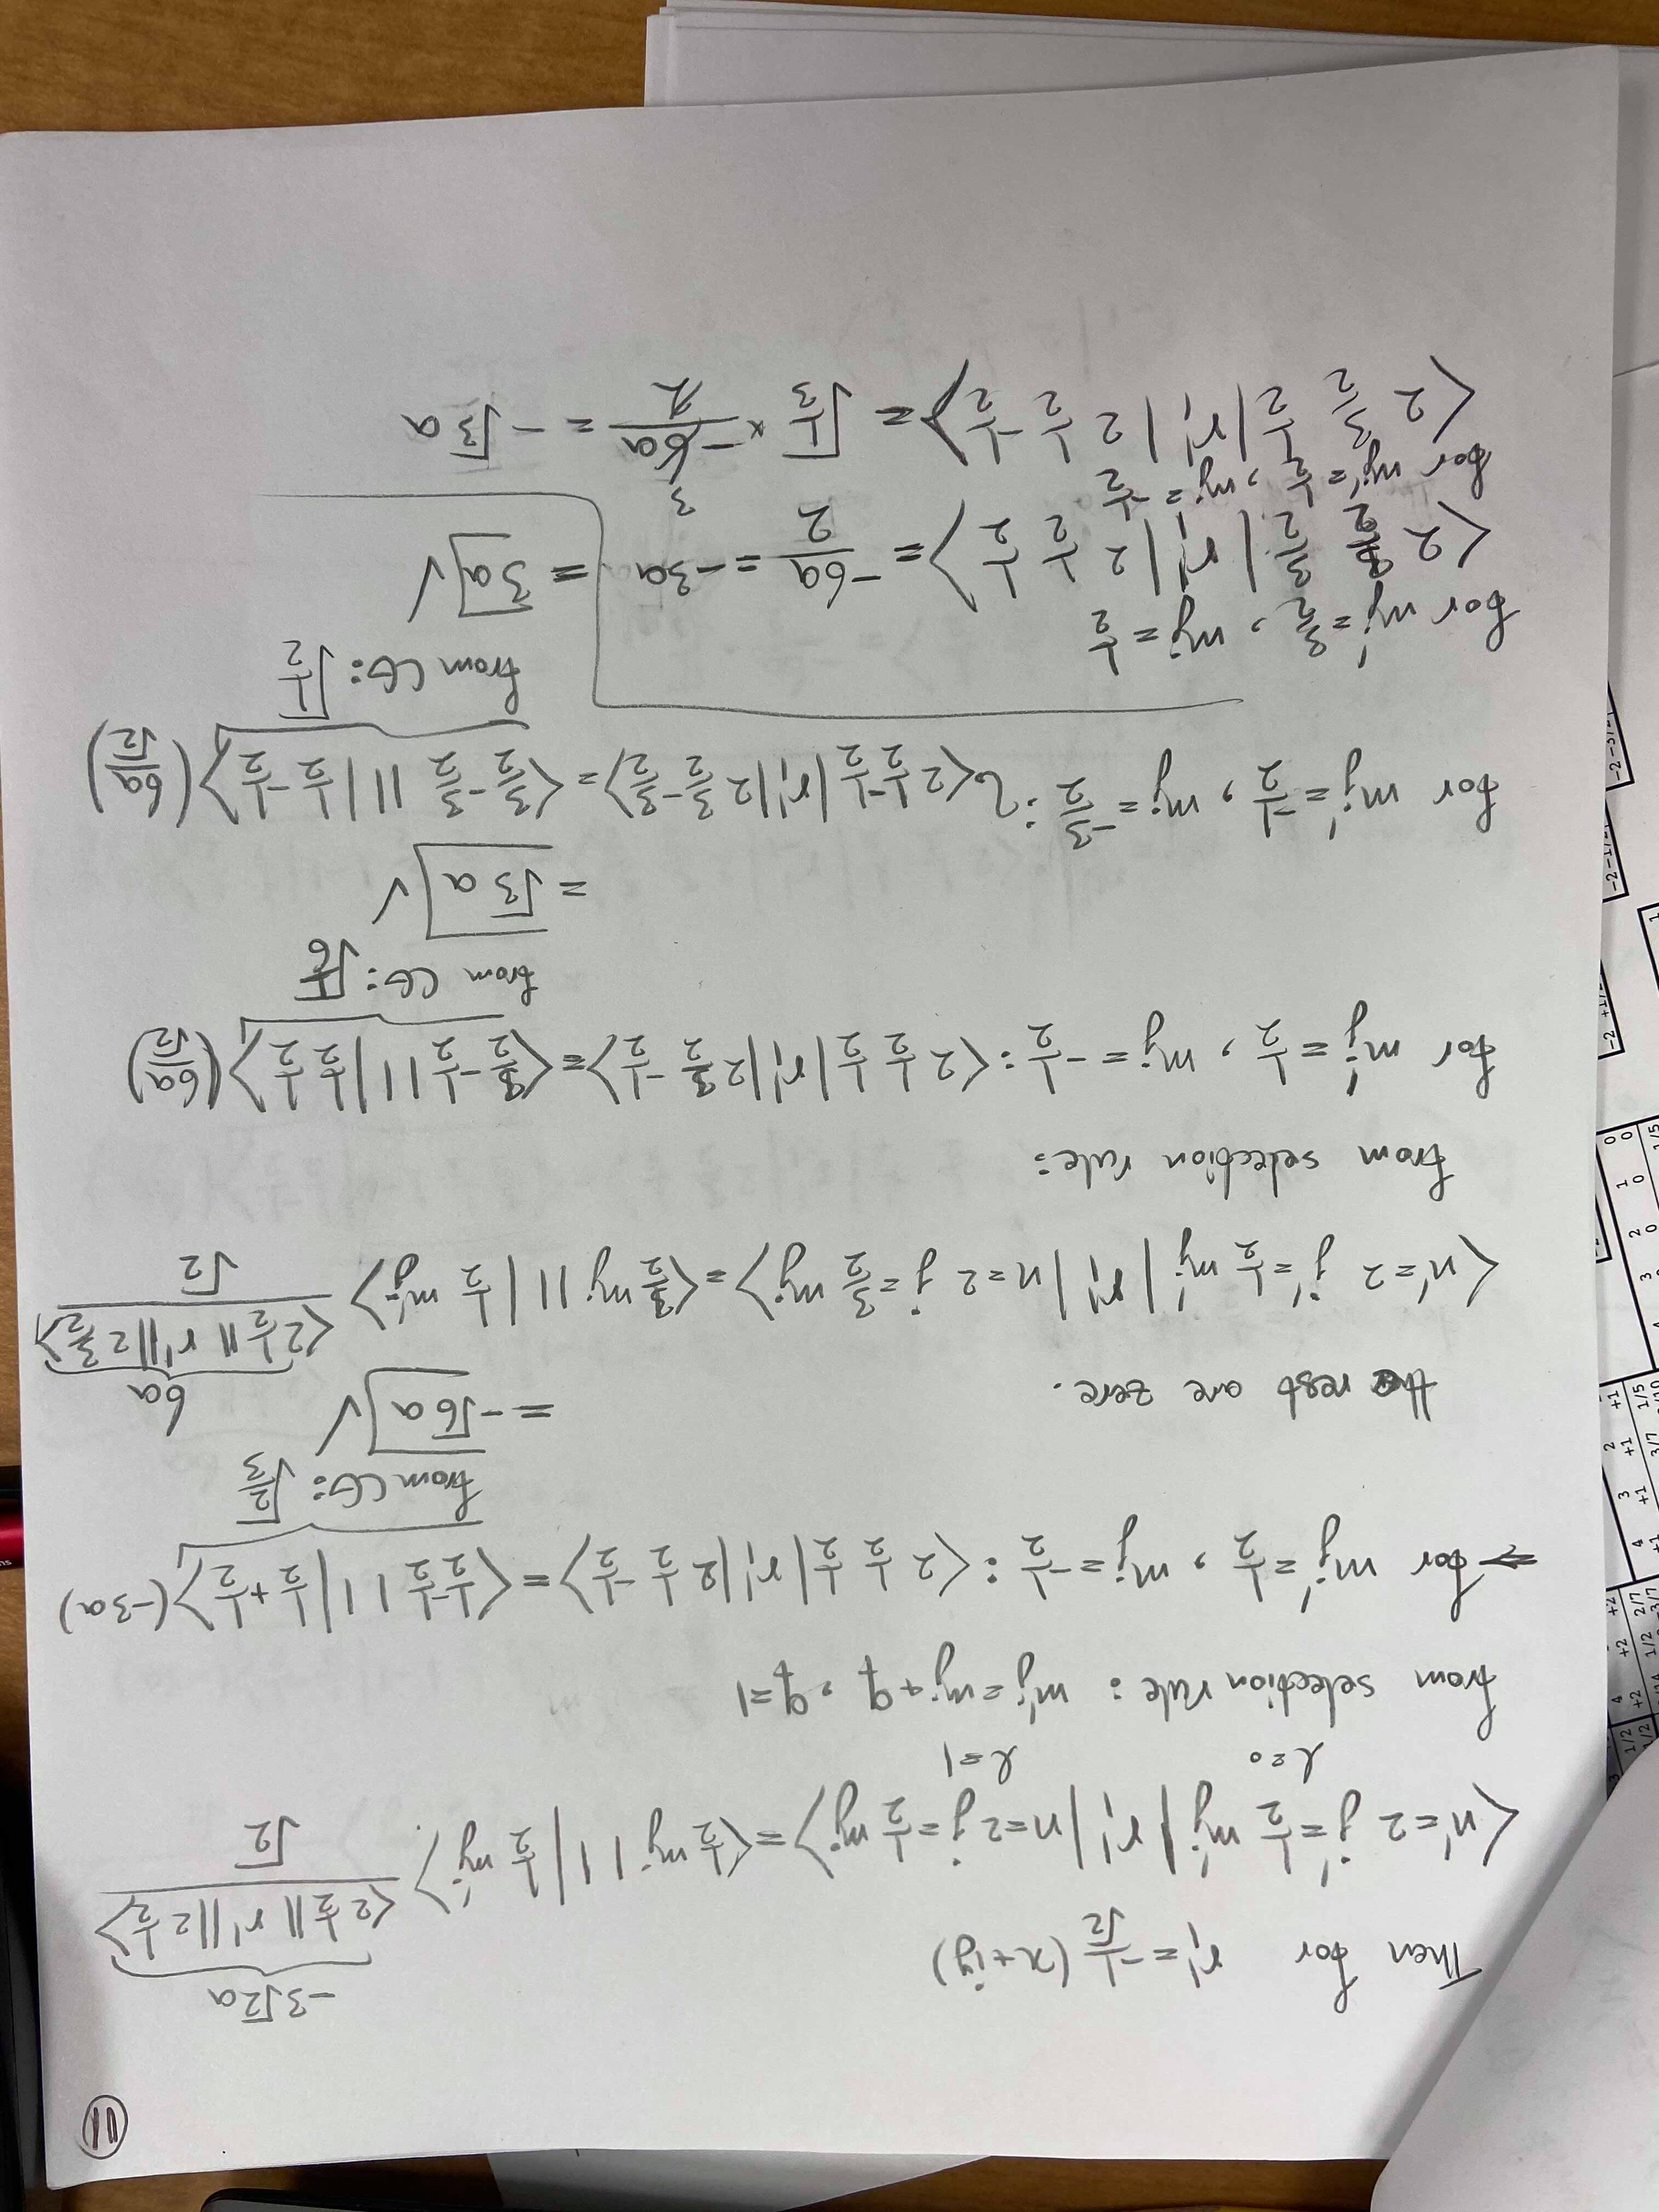 11
Then for r'₁ = -1/√2 (x+iy)
-3√2a
⟨n'=2 j'=1/2 mj' | r'₁ | n=2 j=1/2 mj⟩ = ⟨1/2 mj 1 1 | 1/2 mj'⟩ ⟨2 1/2 || r' || 2 1/2⟩ / √2
l=0 l=1
from selection rule : mj' = mj + q , q=1
⇒ for mj' = 1/2 , mj = -1/2 : ⟨2 1/2 1/2 | r'₁ | 2 1/2 -1/2⟩ = ⟨1/2 -1/2 1 1 | 1/2 +1/2⟩ (-3a)
from CG: √(2/3)
= -√6a ✓
the rest are zero.
6a
⟨n'=2 j'=1/2 mj' | r'₁ | n=2 j=3/2 mj⟩ = ⟨3/2 mj 1 1 | 1/2 mj'⟩ ⟨2 1/2 || r' || 2 3/2⟩ / √2
from selection rule :
for mj' = 1/2 , mj = -1/2 : ⟨2 1/2 1/2 | r'₁ | 2 3/2 -1/2⟩ = ⟨3/2 -1/2 1 1 | 1/2 1/2⟩ (6a/√2)
from CG: √(1/6)
= √3 a ✓
for mj' = -1/2 , mj = -3/2 : ⟨2 1/2 -1/2 | r'₁ | 2 3/2 -3/2⟩ = ⟨3/2 -3/2 1 1 | 1/2 -1/2⟩ (6a/√2)
from CG: √(1/2)
= 3a ✓
for mj' = 3/2 , mj = 1/2
⟨2 3/2 3/2 | r'₁ | 2 1/2 1/2⟩ = -6a/2 = -3a
for mj' = 1/2 , mj = -1/2
⟨2 3/2 1/2 | r'₁ | 2 1/2 -1/2⟩ = √(1/3) × -6a/2 = -√3 a
3